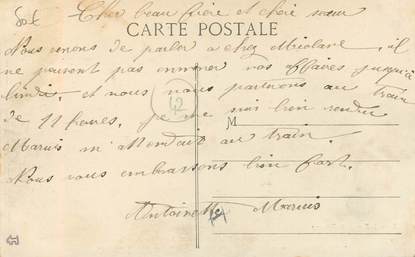 80£
Cher beau frère et chère sœur
CARTE POSTALE
Nous venons de parler a chez Nicolave, il
ne peuvent pas emmener vos affaires jusqu'a
lundi, et nous nous partirons au train
de 11 heures. je me suis bien rendu
12
M
Marius m'attendait au train.
Nous vous embrassons bien fort.
Antoinette Marius